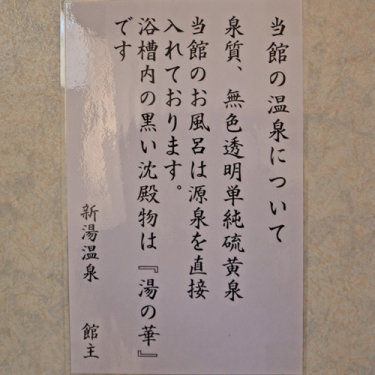 当館の温泉について
泉質、無色透明単純硫黄泉
当館のお風呂は源泉を直接
入れております。
浴槽内の黒い沈殿物は『湯の華』
です
新湯温泉　館主